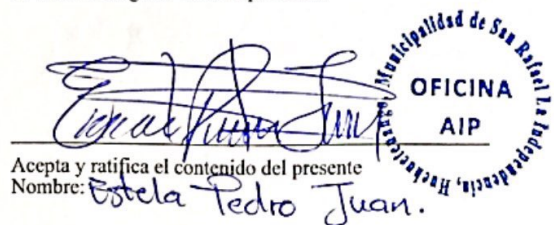 Municipalidad de San Rafael La Independencia, Huehuetenango
OFICINA
AIP
Acepta y ratifica el contenido del presente
Nombre: Estela Pedro Juan.